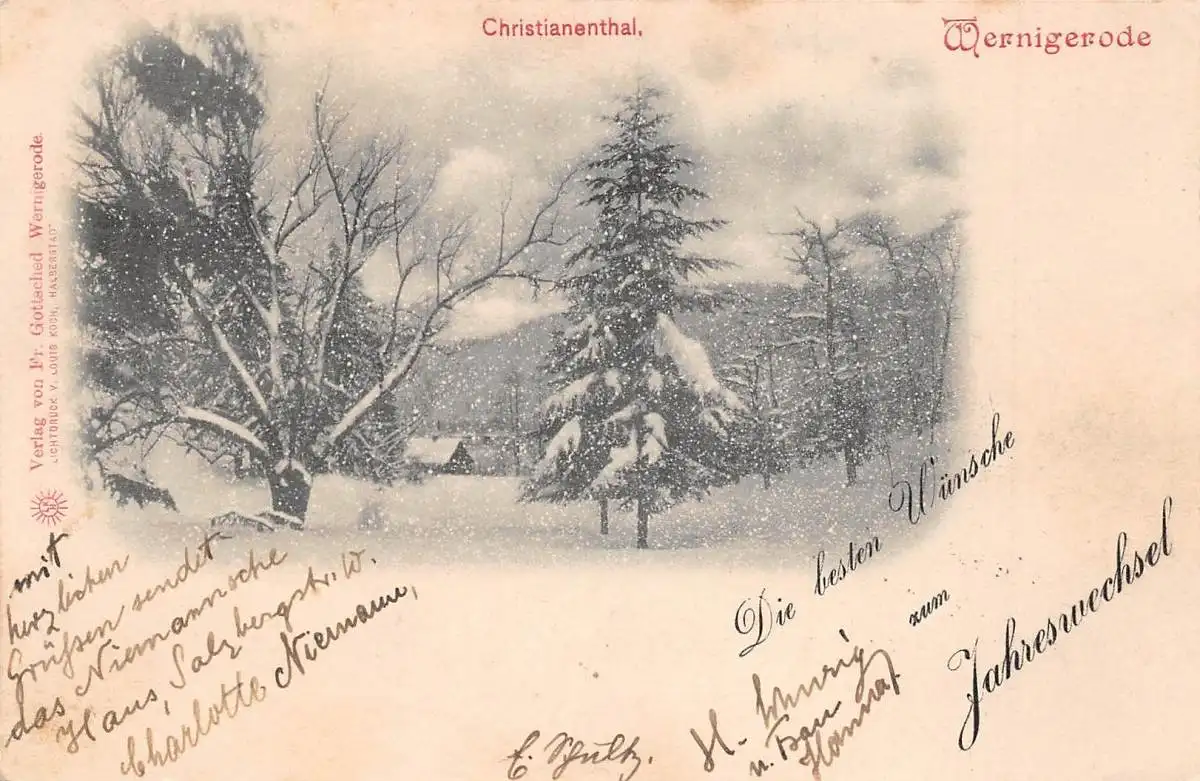 Christianenthal.
Wernigerode
Verlag von Fr. Gottsched Wernigerode.
LICHTDRUCK V. LOUIS KOCH, HALBERSTADT
Die besten Wünsche
zum
Jahreswechsel
mit
herzlichen
Grüßen sendet
das Niemannsche
Haus, Salzbergstr. W.
Charlotte Niemann,
E. Schultz.
H.
u. Frau